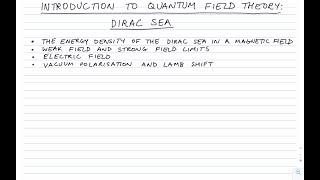 INTRODUCTION TO QUANTUM FIELD THEORY:
DIRAC SEA
• THE ENERGY DENSITY OF THE DIRAC SEA IN A MAGNETIC FIELD
• WEAK FIELD AND STRONG FIELD LIMITS
• ELECTRIC FIELD
• VACUUM POLARISATION AND LAMB SHIFT